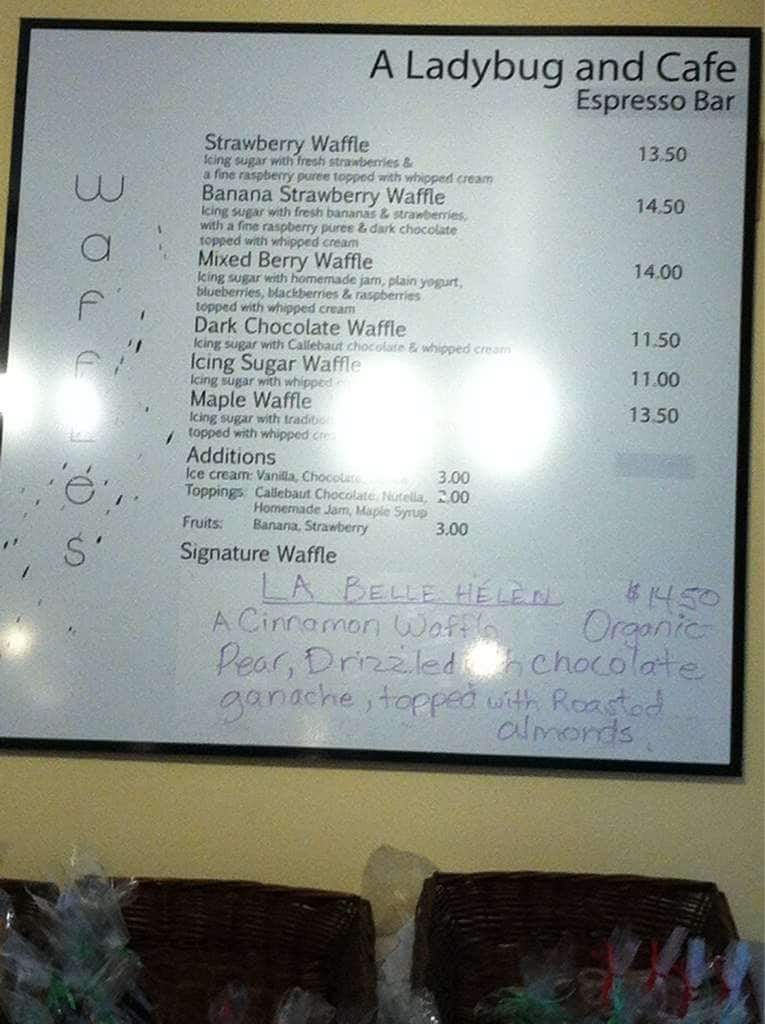 A Ladybug and Cafe
Espresso Bar
waffles
Strawberry Waffle 13.50
Icing sugar with fresh strawberries &
a fine raspberry puree topped with whipped cream
Banana Strawberry Waffle 14.50
Icing sugar with fresh bananas & strawberries,
with a fine raspberry puree & dark chocolate
topped with whipped cream
Mixed Berry Waffle 14.00
Icing sugar with homemade jam, plain yogurt,
blueberries, blackberries & raspberries
topped with whipped cream
Dark Chocolate Waffle 11.50
Icing sugar with Callebaut chocolate & whipped cream
Icing Sugar Waffle 11.00
Icing sugar with whipped
Maple Waffle 13.50
Icing sugar with
topped with whipped
Additions
Ice cream: Vanilla, Chocolate, 3.00
Toppings: Callebaut Chocolate, Nutella, 2.00
Homemade Jam, Maple Syrup
Fruits: Banana, Strawberry 3.00
Signature Waffle
LA BELLE HÉLÈN $14.50
A Cinnamon Waffle Organic
Pear, Drizzled chocolate
ganache, topped with Roasted
almonds.